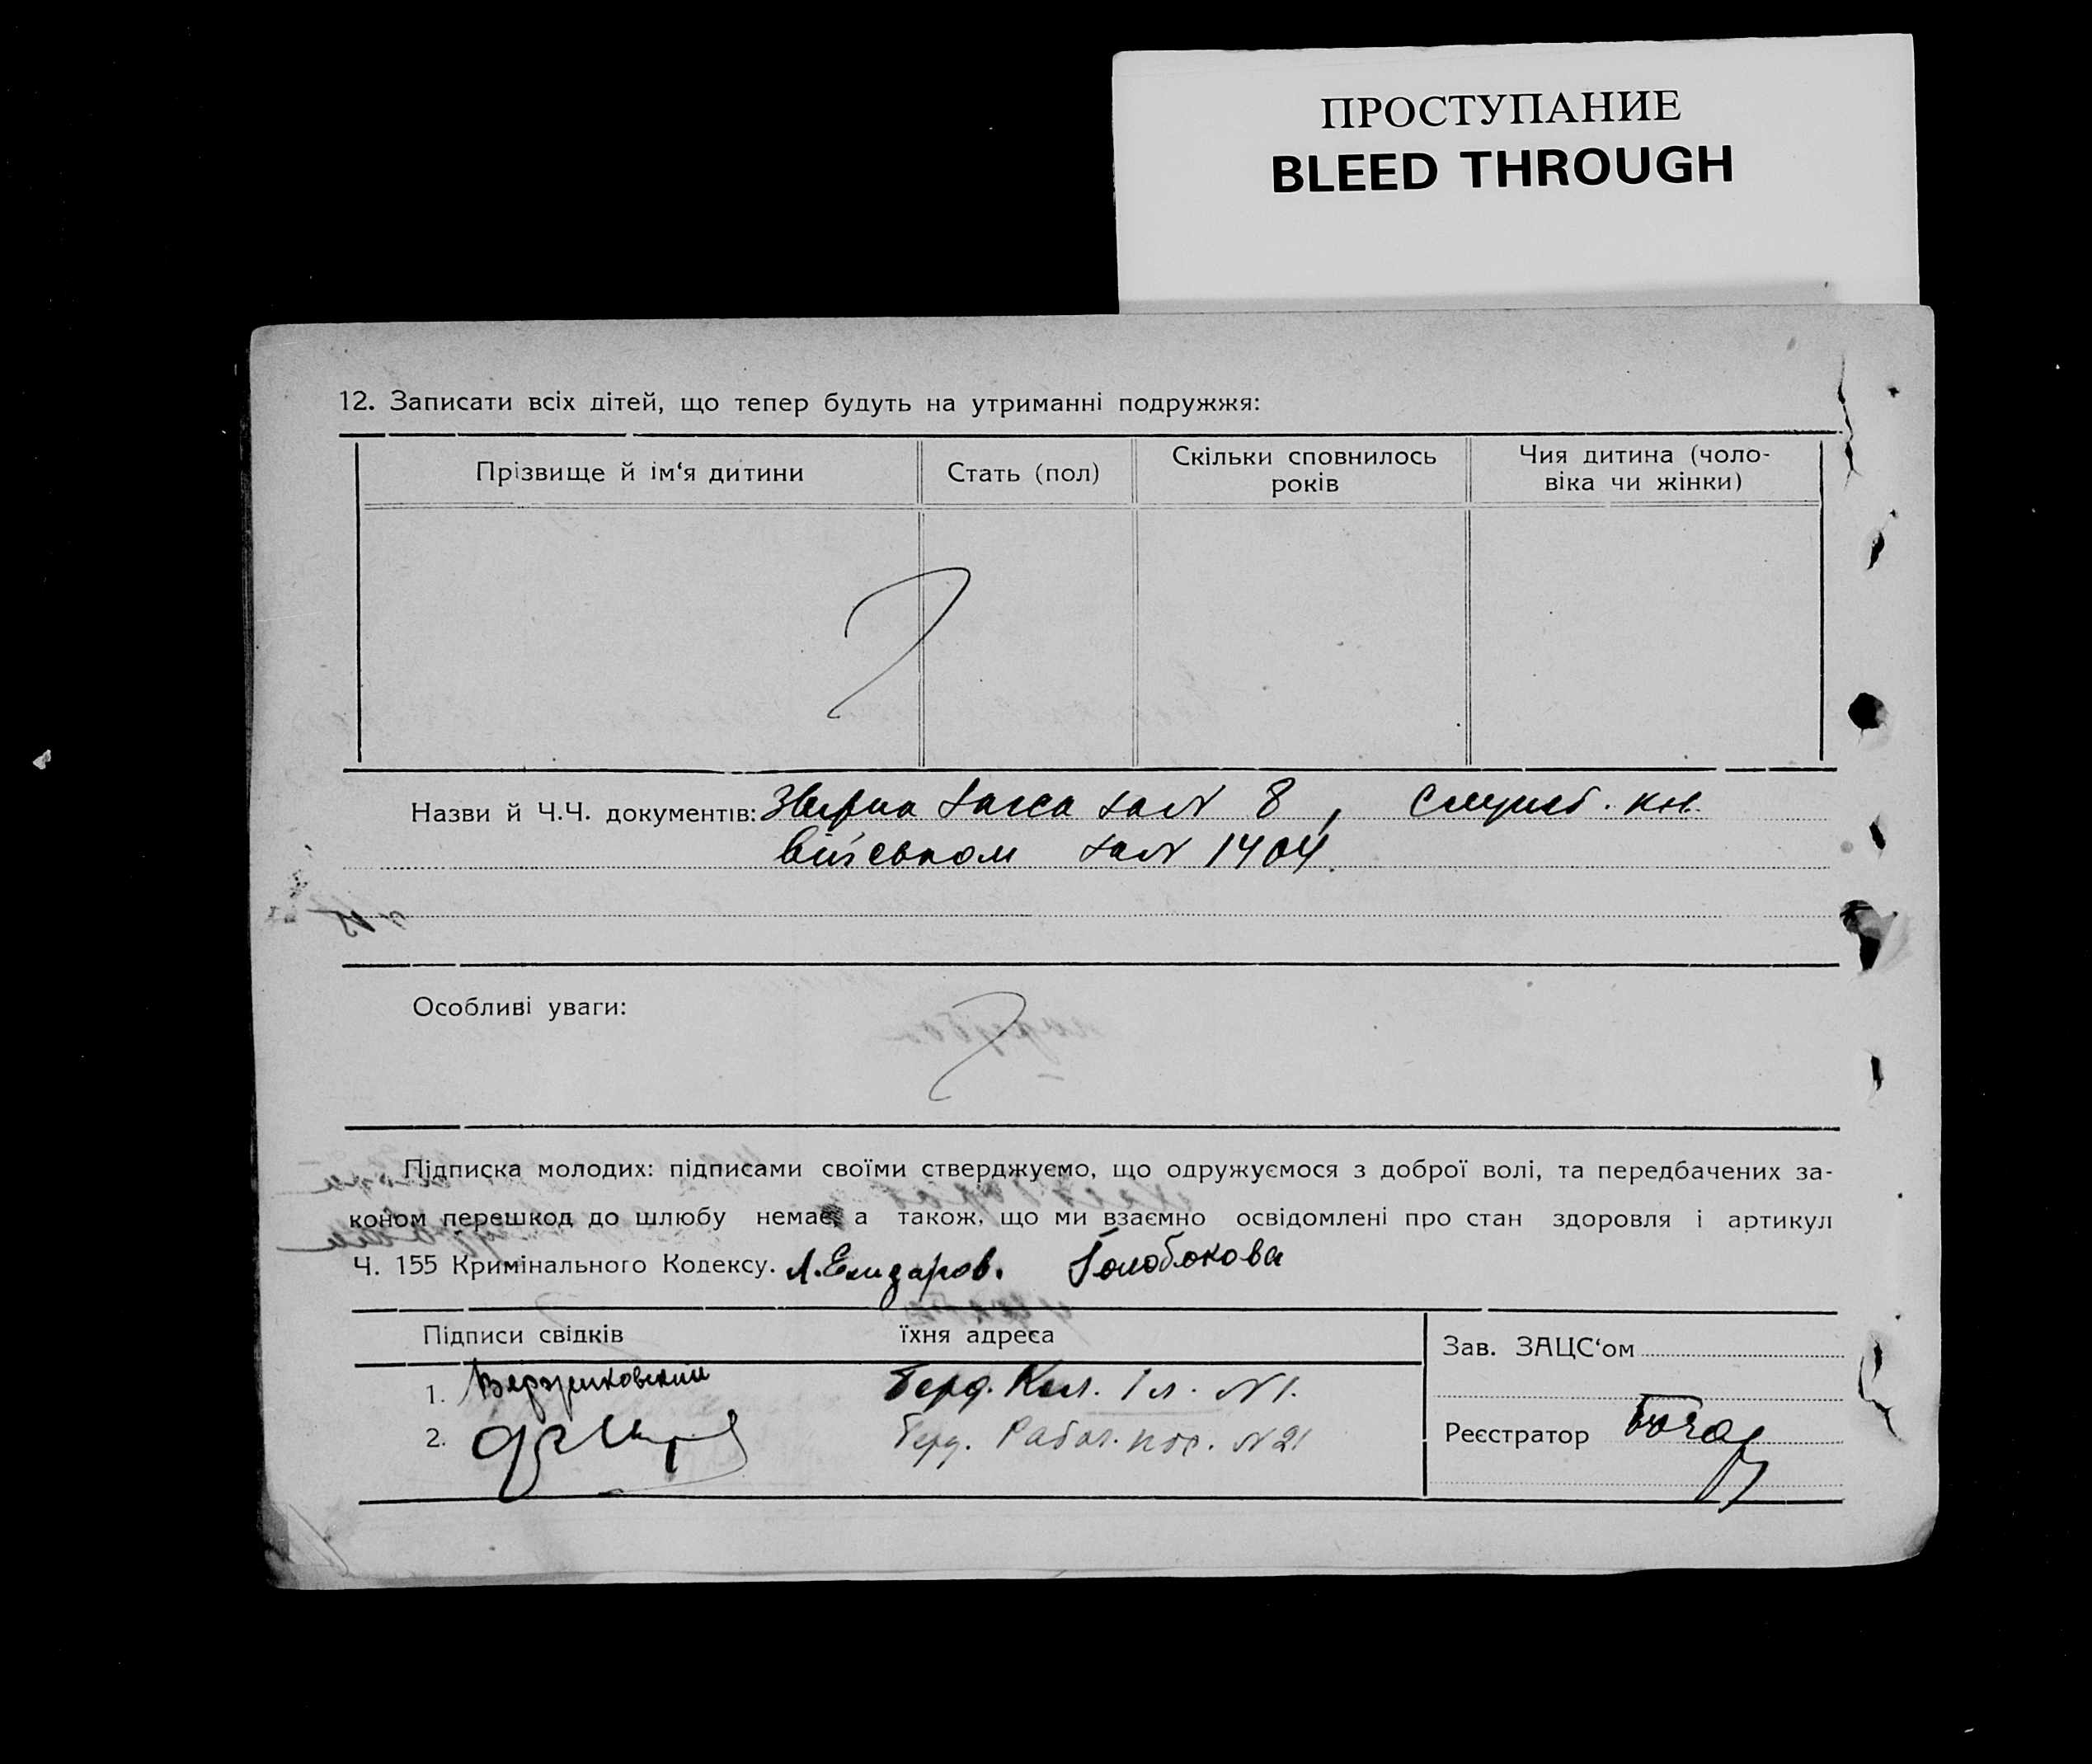 ПРОСТУПАНИЕ
BLEED THROUGH
12. Записати всіх дітей, що тепер будуть на утриманні подружжя:
Прізвище й ім‘я дитини
Стать (пол)
Скільки сповнилось
років
Чия дитина (чоло-
віка чи жінки)
Назви й Ч.Ч. документів: 8,
1404
Особливі уваги:
Підписка молодих: підписами своїми стверджуємо, що одружуємося з доброї волі, та передбачених за-
коном перешкод до шлюбу немає, а також, що ми взаємно освідомлені про стан здоровля і артикул
Ч. 155 Кримінального Кодексу. Голобокова
Підписи свідків
їхня адреса
Зав. ЗАЦС‘ом
1.
Берд. №1.
2.
Берд. №21
Реєстратор